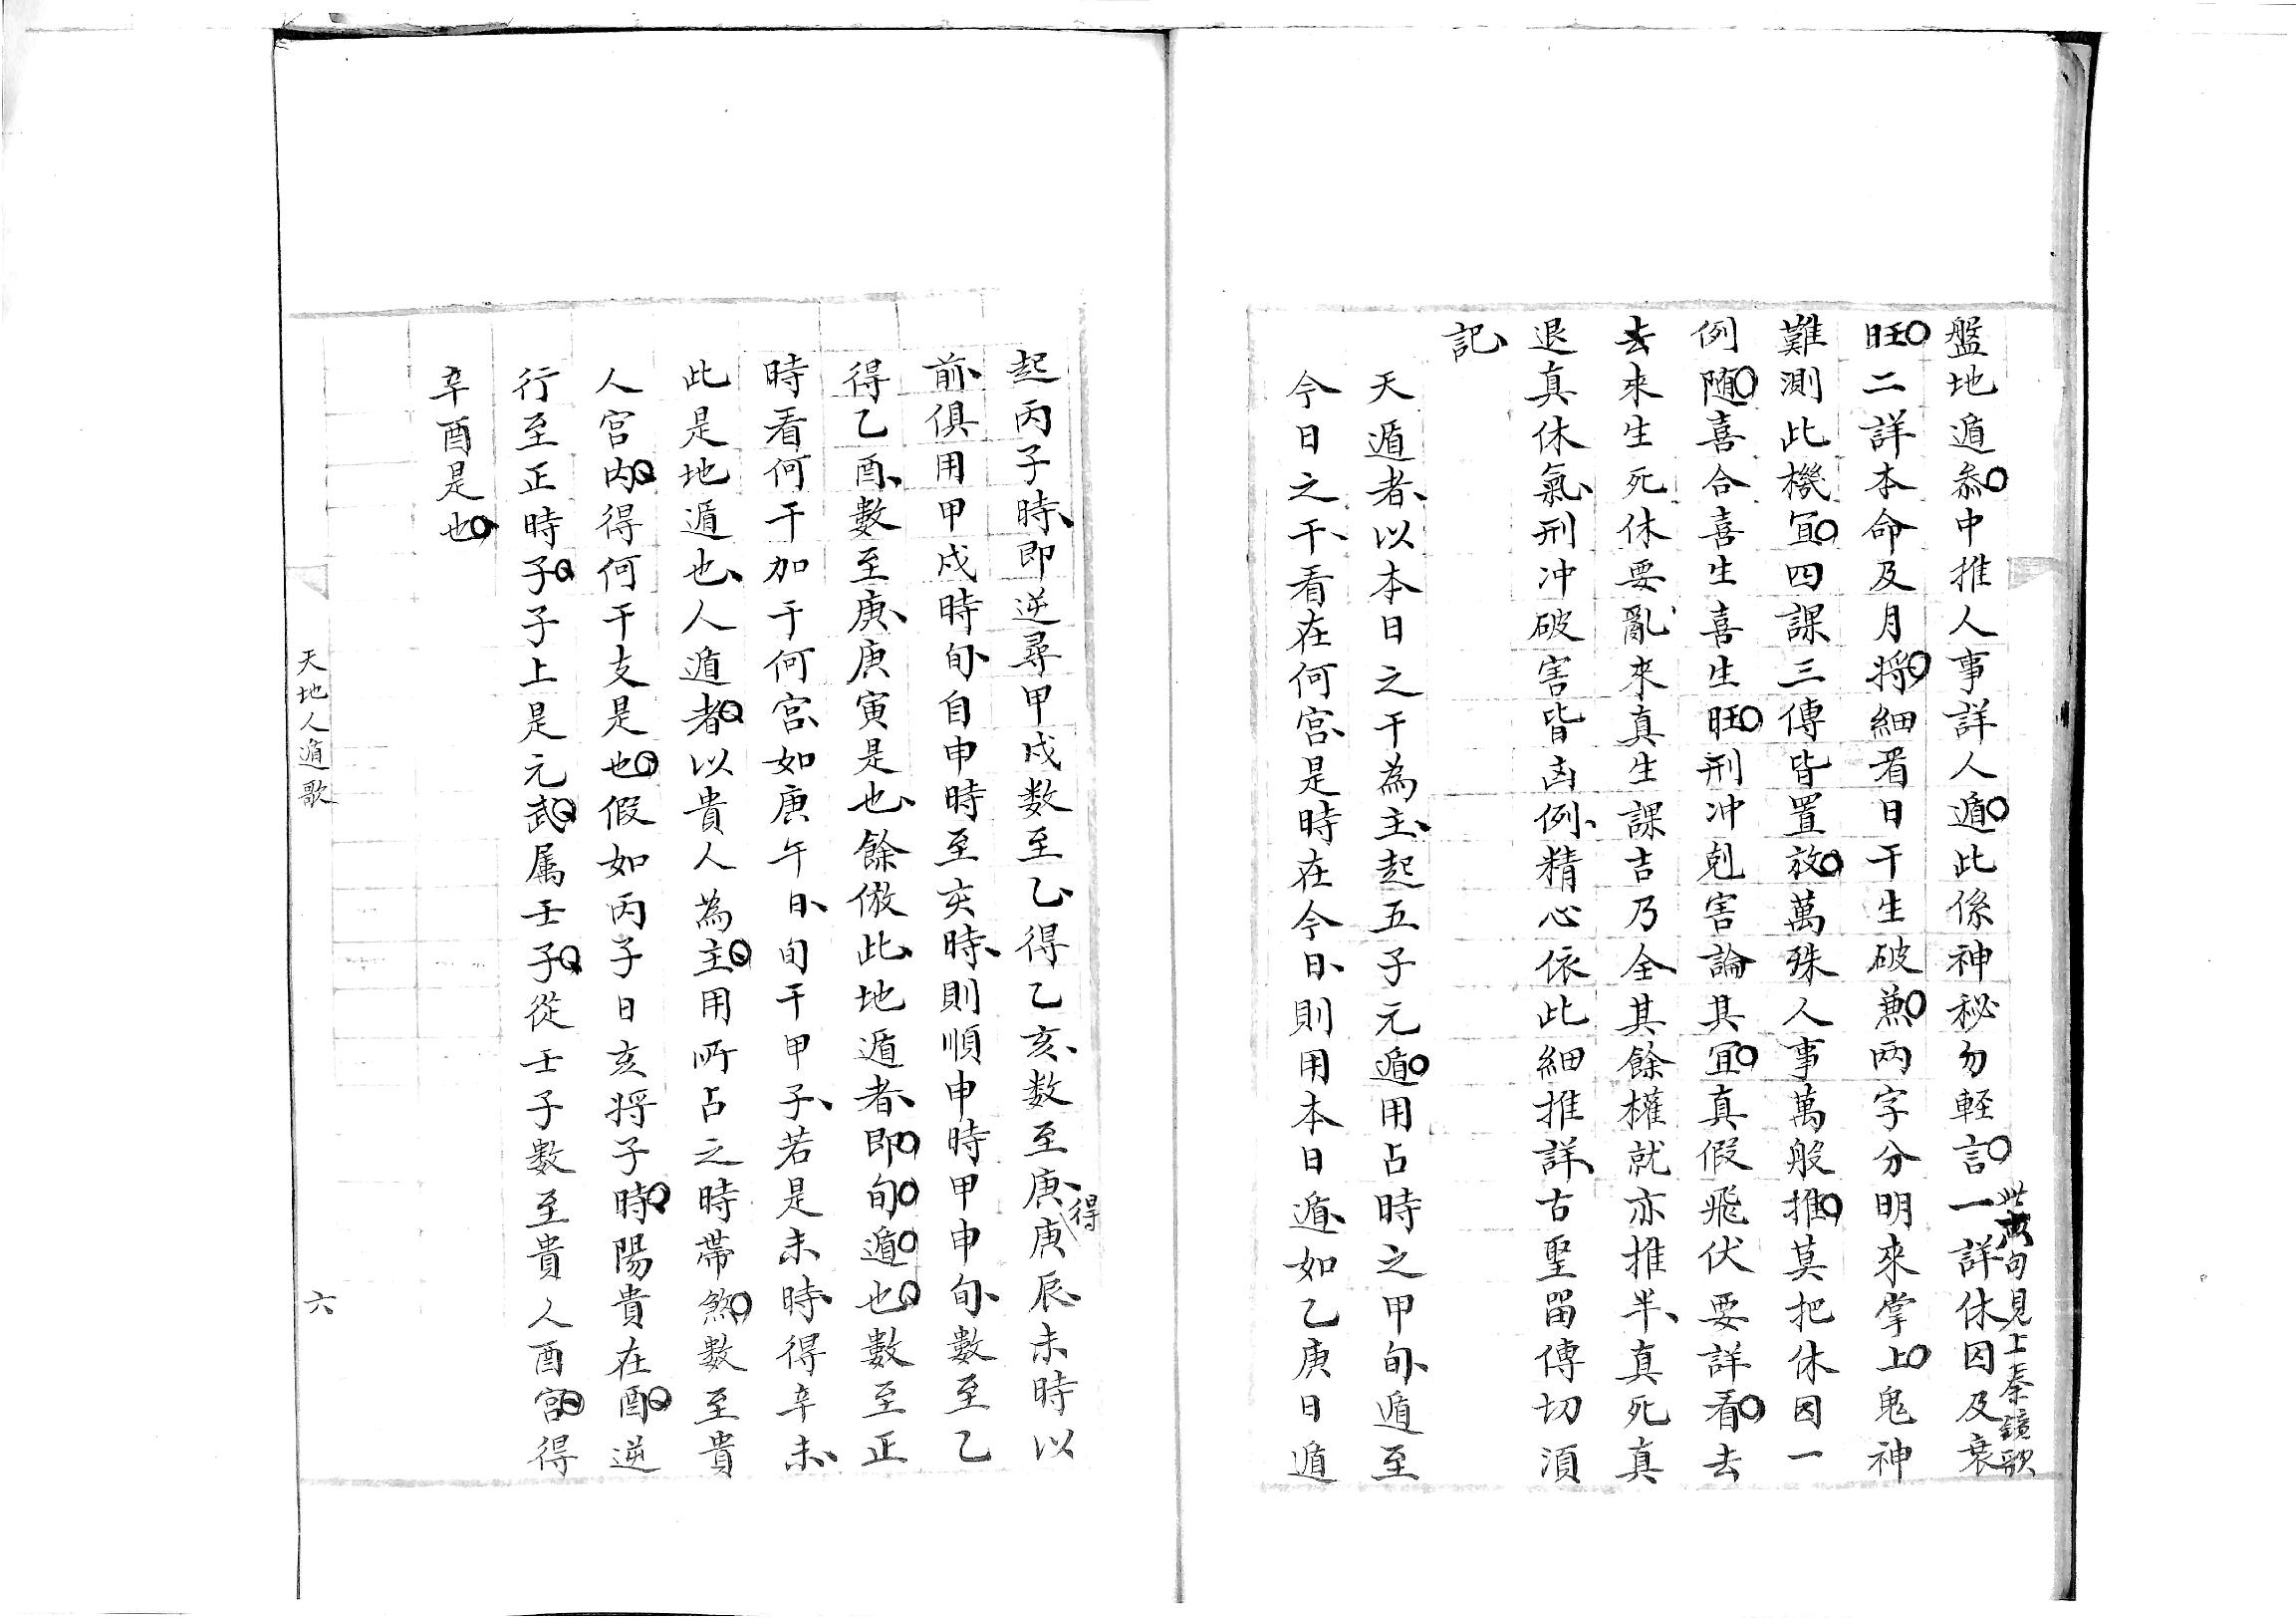 盤地遁叅中推人事詳人遁此係神秘勿輕言一詳休囚及衰
句見上秦鏡歌
旺二詳本命及月将細看日干生破兼两字分明來掌上鬼神
難測此機宜四課三傳皆置放萬殊人事萬般推莫把休囚一
例随喜合喜生喜生旺刑冲剋害論其宜真假飛伏要詳看去
去來生死休要亂來真生課吉乃全其餘權就亦推半真死真
退真休氣刑冲破害皆凶例精心依此細推詳古聖留傳切須
記
天遁者以本日之干為主起五子元遁用占時之甲旬遁至
今日之干看在何宮是時在今日則用本日遁如乙庚日遁
起丙子時即逆尋甲戌数至乙得乙亥数至庚得庚辰未時以
前俱用甲戌時旬自申時至亥時則順申時甲申旬數至乙
得乙酉數至庚庚寅是也餘倣此地遁者即旬遁也數至正
時看何干加于何宮如庚午日旬干甲子若是未時得辛未
此是地遁也人遁者以貴人為主用所占之時帶煞數至貴
人宮內得何干支是也假如丙子日亥将子時陽貴在酉逆
行至正時子子上是元武属壬子從壬子數至貴人酉宮得
辛酉是也
天地人遁歌
六